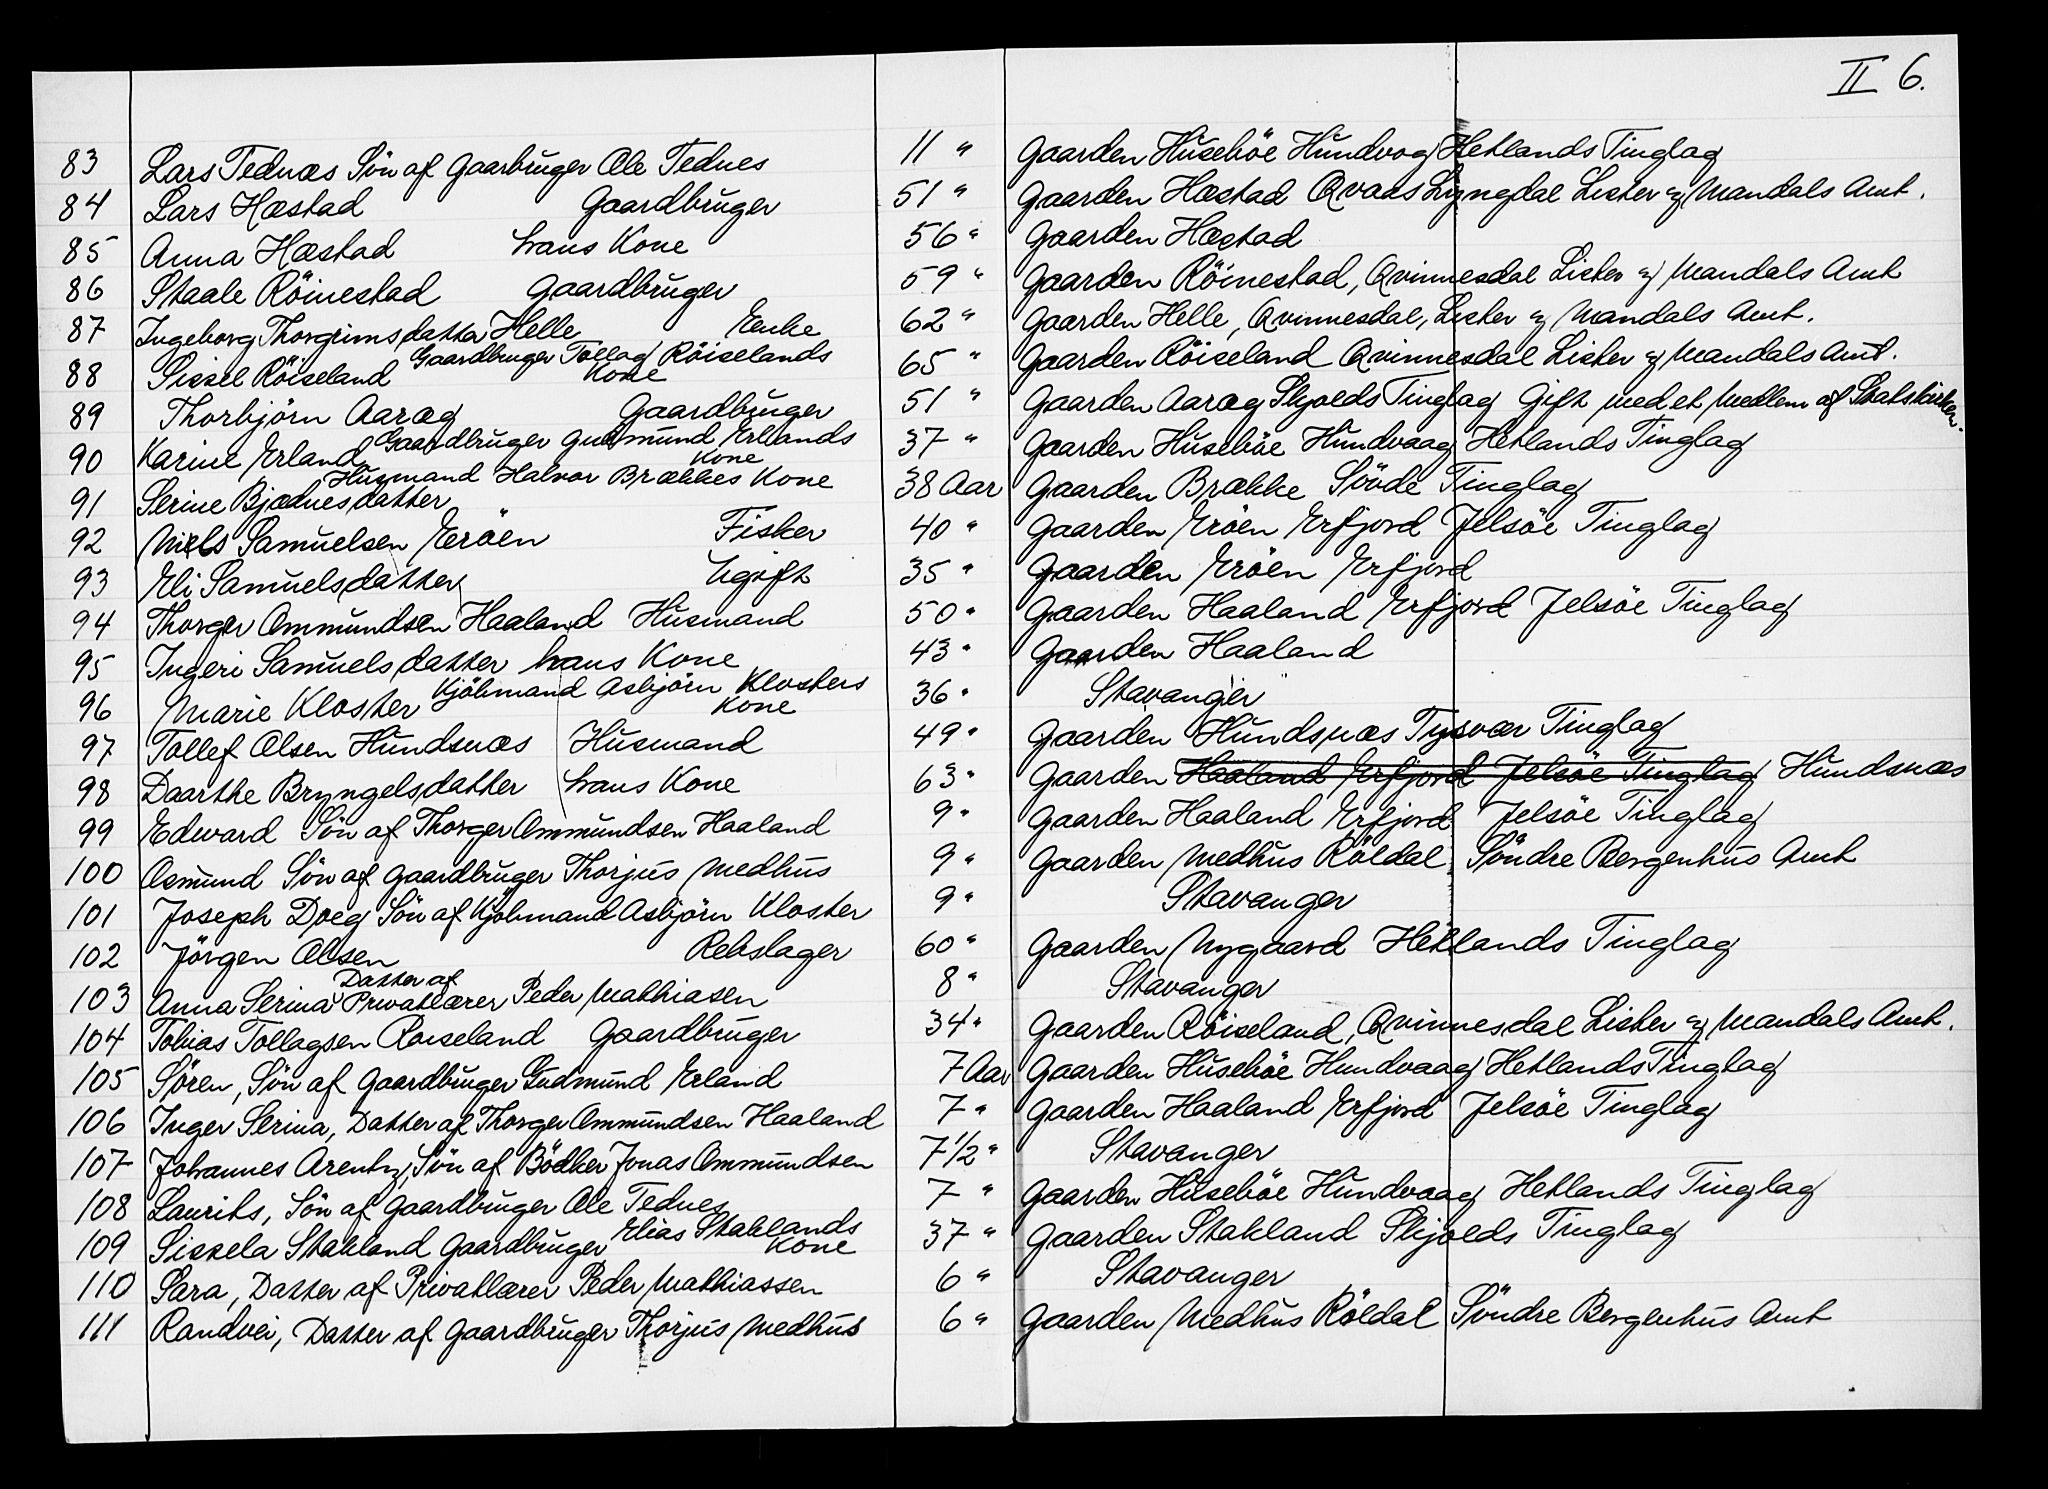 II 6.
83 Lars Tednæs Søn af Gaarbruger Ole Tednes 11 " Gaarden Huseböe Hundvog Hetlands Tinglag
84 Lars Hæstad Gaardbruger 51 " Gaarden Hæstad Qvaas Lyngdal Lister og Mandals Amt.
85 Anna Hæstad hans Kone 56 " Gaarden Hæstad
86 Staale Röinestad Gaardbruger 59 " Gaarden Röinestad, Qvinnesdal Lister og Mandals Amt
87 Ingeborg Thorgrimsdatter Helle Enke 62 " Gaarden Helle, Qvinnesdal, Lister og Mandals Amt.
88 Sissel Röiseland Gaardbruger Tollag Röiselands Kone 65 " Gaarden Röiseland Qvinnesdal Lister og Mandals Amt.
89 Thorbjörn Aaræg Gaardbruger 51 " Gaarden Aaræg Skjolds Tinglag Gift med et Medlem af Statskirken.
90 Karine Erland Gaardbruger Gudmund Erlands Kone 37 " Gaarden Huseböe Hundvaag Hetlands Tinglag
91 Serine Bjædnesdatter Husmand Halvor Brækkes Kone 38 Aar Gaarden Brække Sövde Tinglag
92 Niels Samuelsen Eröen Fisker 40 " Gaarden Eröen Erfjord Jelsöe Tinglag
93 Eli Samuelsdatter Ugift 35 " Gaarden Eröen Erfjord
94 Thorger Ommundsen Haaland Husmand 50 " Gaarden Haaland Erfjord Jelsöe Tinglag
95 Ingeri Samuelsdatter hans Kone 43 " Gaarden Haaland
96 Marie Kloster Kjöbmand Asbjörn Klosters Kone 36 " Stavanger
97 Tollef Olsen Hundsnæs Husmand 49 " Gaarden Hundsnæs Tysvær Tinglag
98 Daarthe Bryngelsdatter hans Kone 63 " Gaarden Haaland Erfjord Jelsöe Tinglag Hundsnæs
99 Edward Søn af Thorger Ommundsen Haaland 9 " Gaarden Haaland Erfjord Jelsöe Tinglag
100 Osmund Sön af Gaardbruger Thorjus Medhus 9 " Gaarden Medhus Röldal Söndre Bergenhus Amt
101 Joseph Doeg Sön af Kjöbmand Asbjörn Kloster 9 " Stavanger
102 Jörgen Olsen Rebslager 60 " Gaarden Nygaard Hetlands Tinglag
103 Anna Serina Datter af Privatlærer Peder Mathiasen 8 " Stavanger
104 Tobias Tollagsen Roiseland Gaardbruger 34 " Gaarden Röiseland, Qvinnesdal Lister og Mandals Amt.
105 Søren, Sön af Gaardbruger Gudmund Erland 7 Aar Gaarden Husebøe Hundvaag Hetlands Tinglag
106 Inger Serina, Datter af Thorger Ommundsen Haaland 7 " Gaarden Haaland Erfjord Jelsöe Tinglag
107 Johannes Arentz, Sön af Bödker Jonas Ommundsen 7 1/2 " Stavanger
108 Laurits, Sön af Gaardbruger Ole Tednes 7 " Gaarden Husebøe Hundvaag Hetlands Tinglag
109 Sissela Stakland Gaardbruger Elias Staklands Kone 37 " Gaarden Stakland Skjolds Tinglag
110 Sara, Datter af Privatlærer Peder Mathiassen 6 " Stavanger
111 Randvei, Datter af Gaardbruger Thorjus Medhus 6 " Gaarden Medhus Röldal Söndre Bergenhus Amt